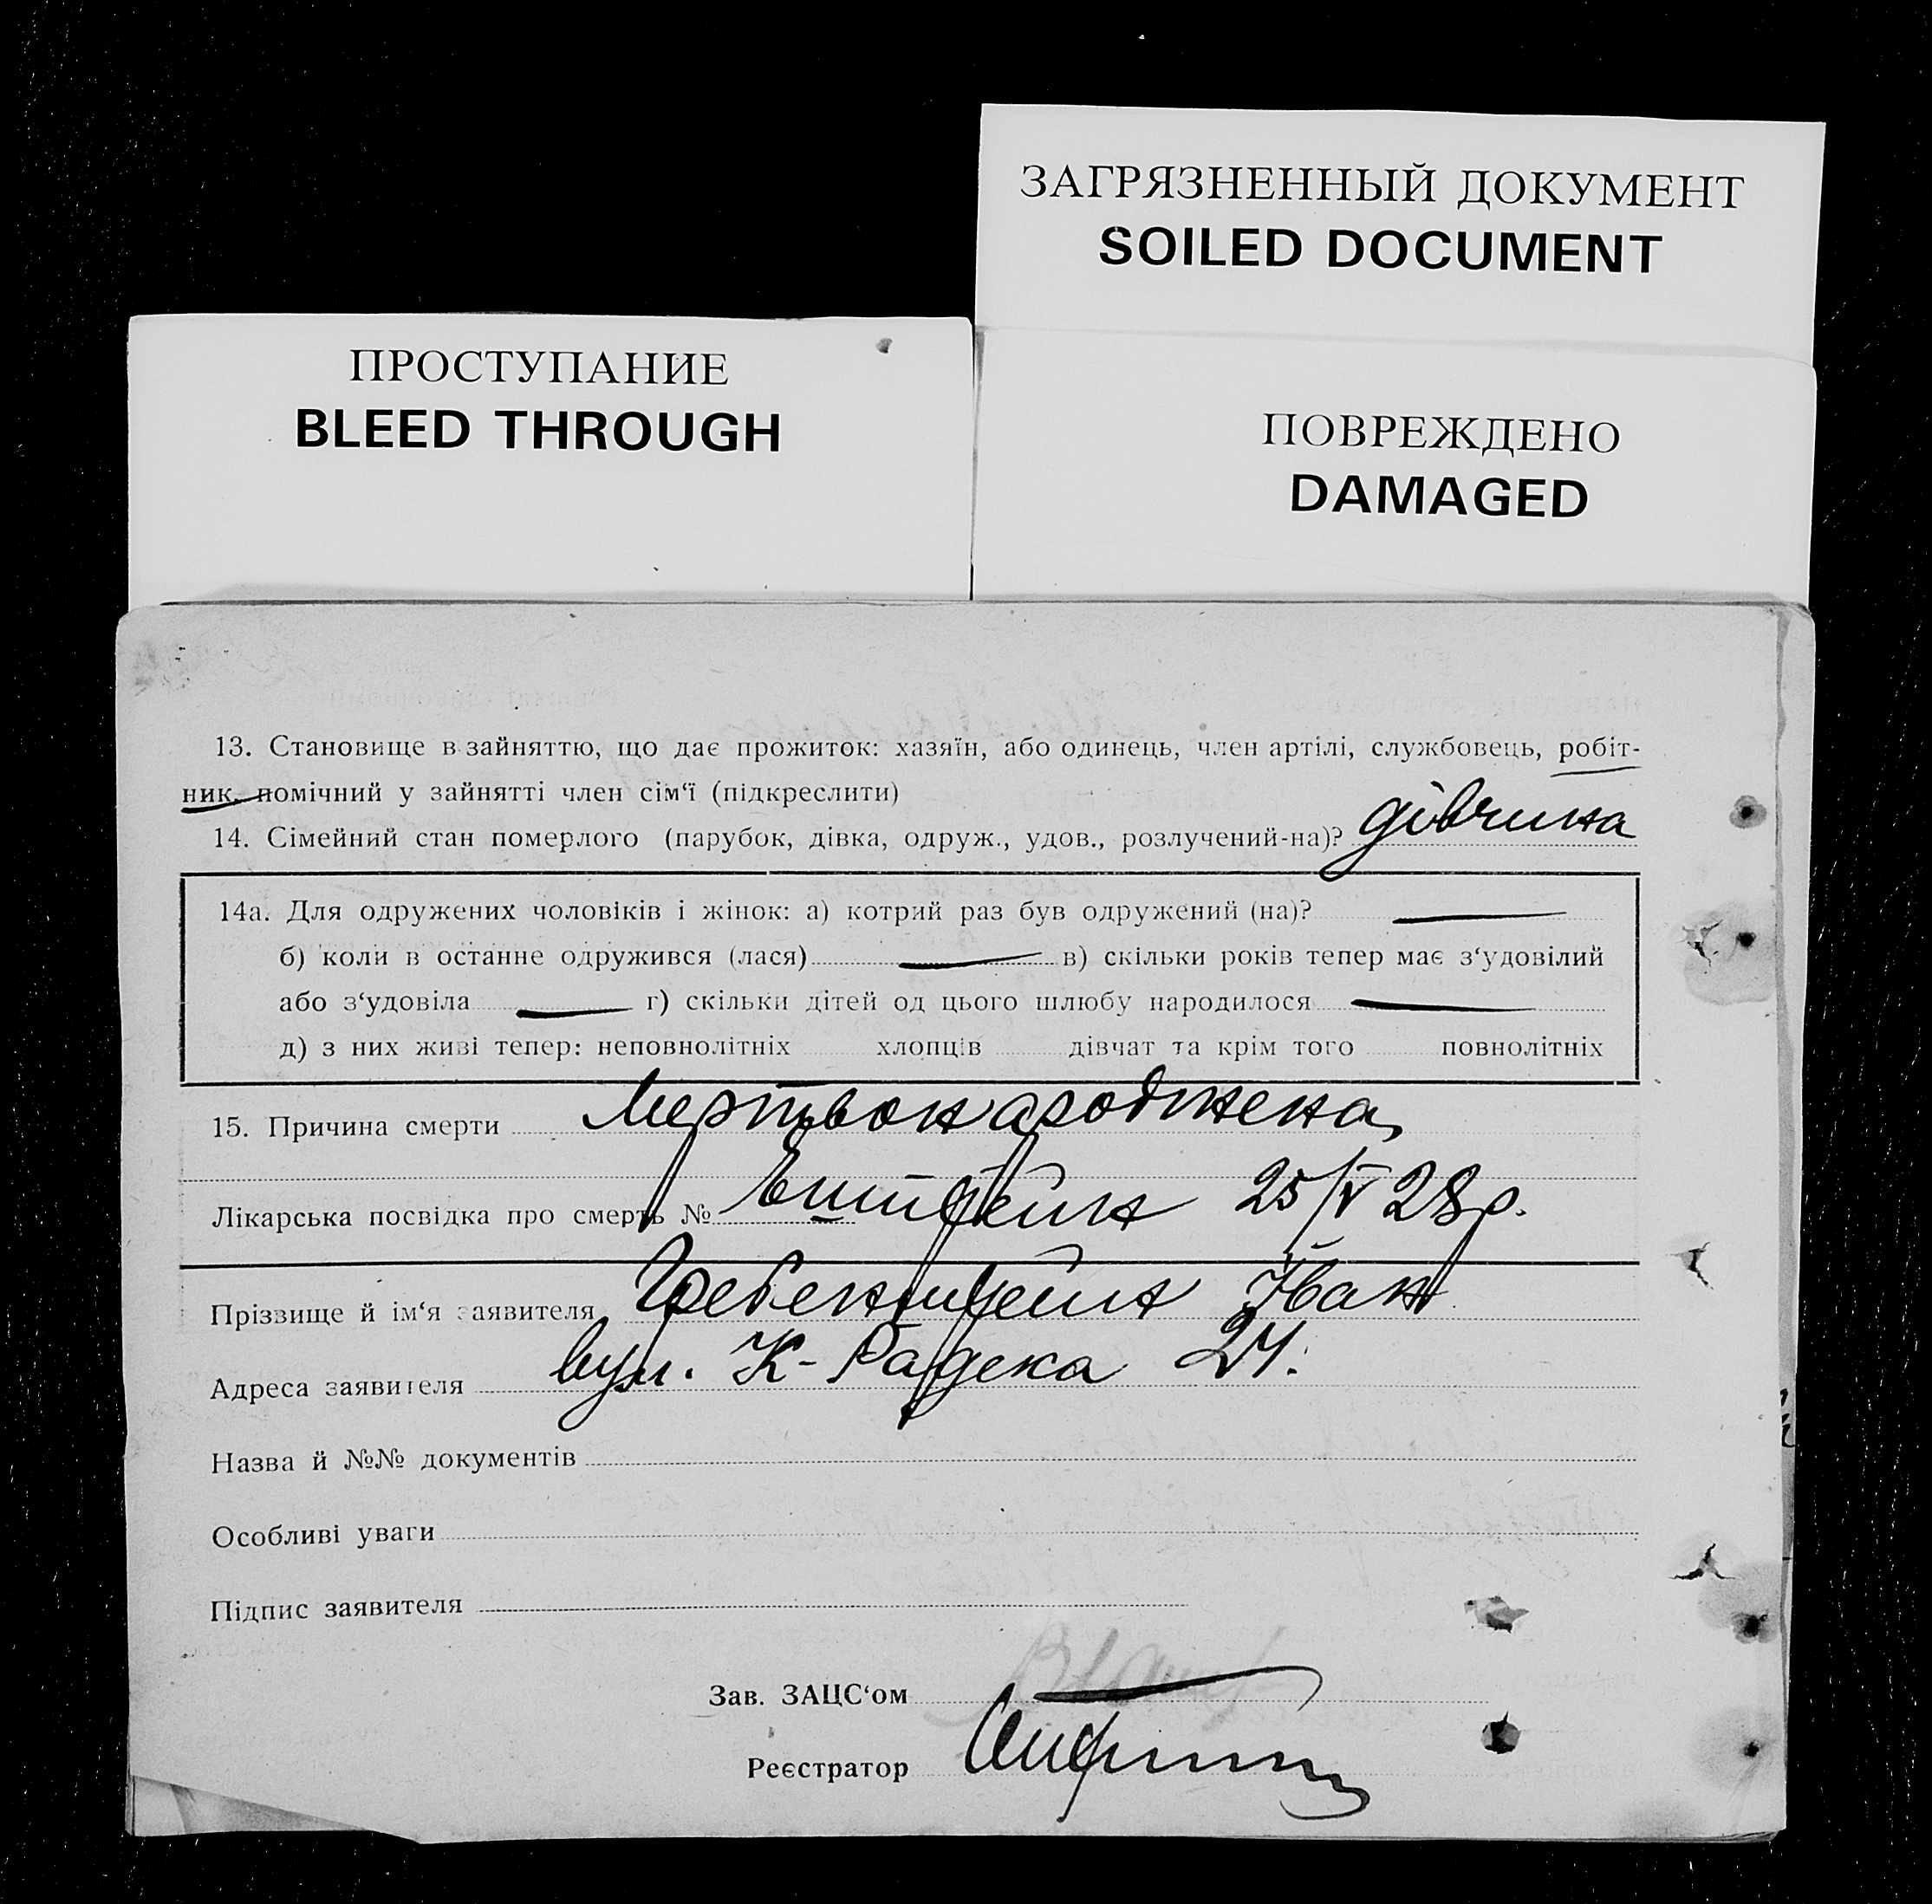 ЗАГРЯЗНЕННЫЙ ДОКУМЕНТ
SOILED DOCUMENT
ПРОСТУПАНИЕ
BLEED THROUGH
ПОВРЕЖДЕНО
DAMAGED
13. Становище в зайняттю, що дає прожиток: хазяїн, або одинець, член артілі, службовець, робіт-
ник, помічний у зайнятті член сім‘ї (підкреслити)
14. Сімейний стан померлого (парубок, дівка, одруж., удов., розлучений-на)? дівчина
14а. Для одружених чоловіків і жінок: а) котрий раз був одружений (на)?
б) коли в останне одружився (лася) в) скільки років тепер має з‘удовілий
або з‘удовіла г) скільки дітей од цього шлюбу народилося
д) з них живі тепер: неповнолітніх хлопців дівчат та крім того повнолітніх
15. Причина смерти Мертвонароджена
Лікарська посвідка про смерть № Епштейн 25/V 28 р.
Прізвище й ім‘я заявителя Гребенштейн Іван
Адреса заявителя вул. К-Радека 24.
Назва й №№ документів
Особливі уваги
Підпис заявителя
Зав. ЗАЦС‘ом
Реєстратор